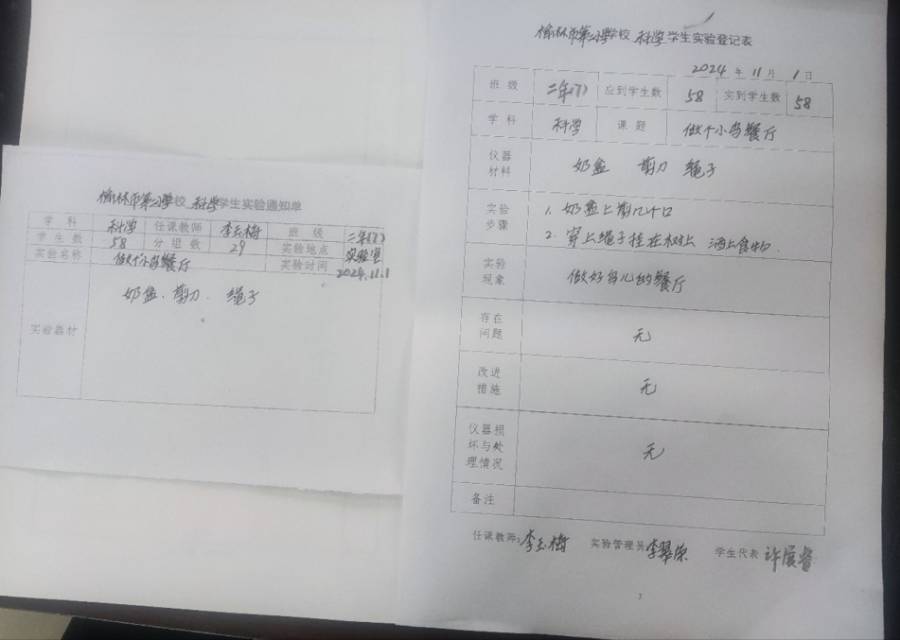 榆林市第 小学校 科学学生实验通知单
学科 科学 任课教师 李玉梅 班级 二年(7)
学生数 58 分组数 29 实验地点 实验室
实验名称 做个小鸟餐厅 实验时间 2024.11.1
实验器材 奶盒、剪刀、绳子
榆林市第 小学校 科学学生实验登记表
2024年11月1日
班级 二年(7) 应到学生数 58 实到学生数 58
学科 科学 课题 做个小鸟餐厅
仪器材料 奶盒 剪刀 绳子
实验步骤 1. 奶盒上剪几个口
2. 穿上绳子挂在树上 上食物.
实验现象 做好鸟儿的餐厅
存在问题 无
改进措施 无
仪器损坏与处理情况 无
备注
任课教师:李玉梅 实验管理员 李翠 学生代表 许